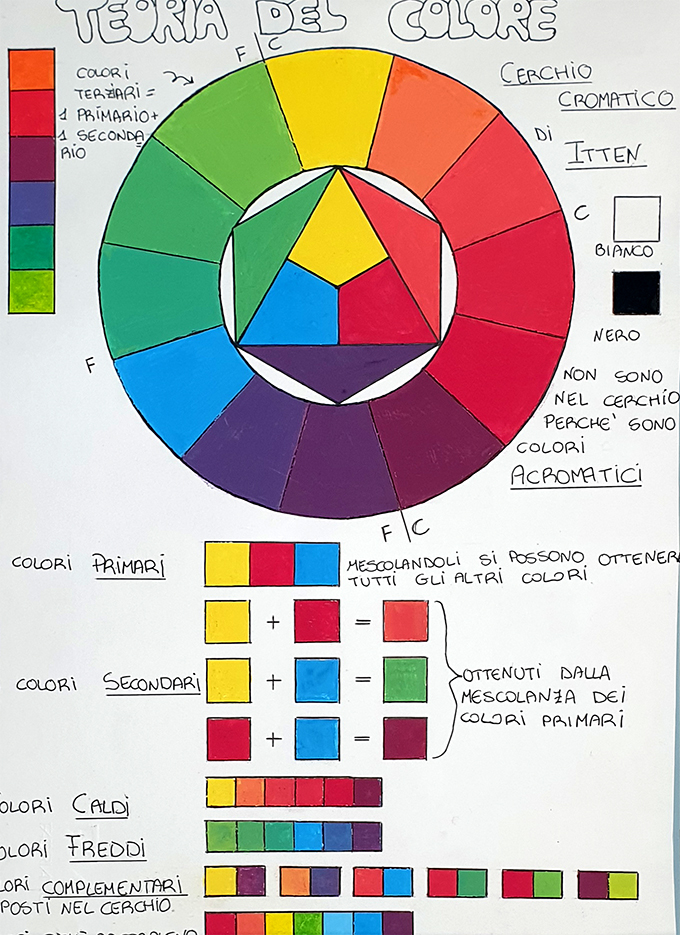 TEORIA DEL COLORE
F C
COLORI
TERZIARI =
1 PRIMARIO +
1 SECONDA-
RIO
CERCHIO
CROMATICO
DI
ITTEN
C
BIANCO
NERO
F
NON SONO
NEL CERCHIO
PERCHE' SONO
COLORI
ACROMATICI
F C
COLORI PRIMARI
MESCOLANDOLI SI POSSONO OTTENER
TUTTI GLI ALTRI COLORI.
+ =
COLORI SECONDARI
+ =
+ =
OTTENUTI DALLA
MESCOLANZA DEI
COLORI PRIMARI
OLORI CALDI
OLORI FREDDI
LORI COMPLEMENTARI
POSTI NEL CERCHIO.